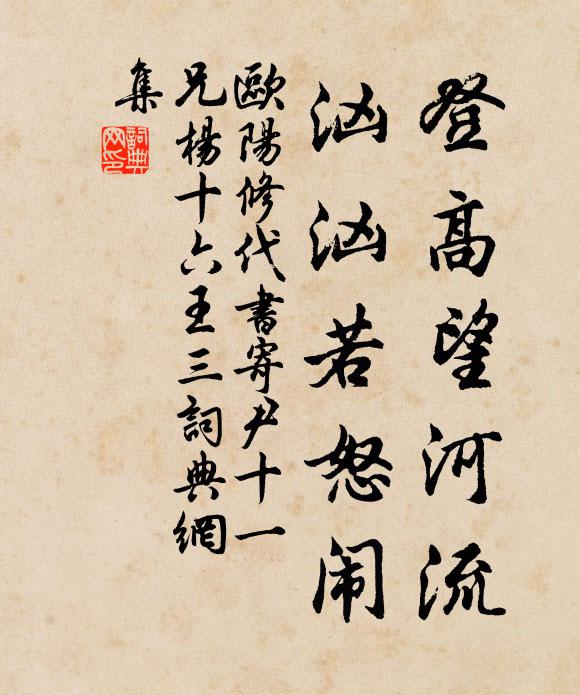 登高望河流
汹汹若怒闹
歐陽修代書寄尹十一
兄楊十六王三詞典網
集
詞典网印